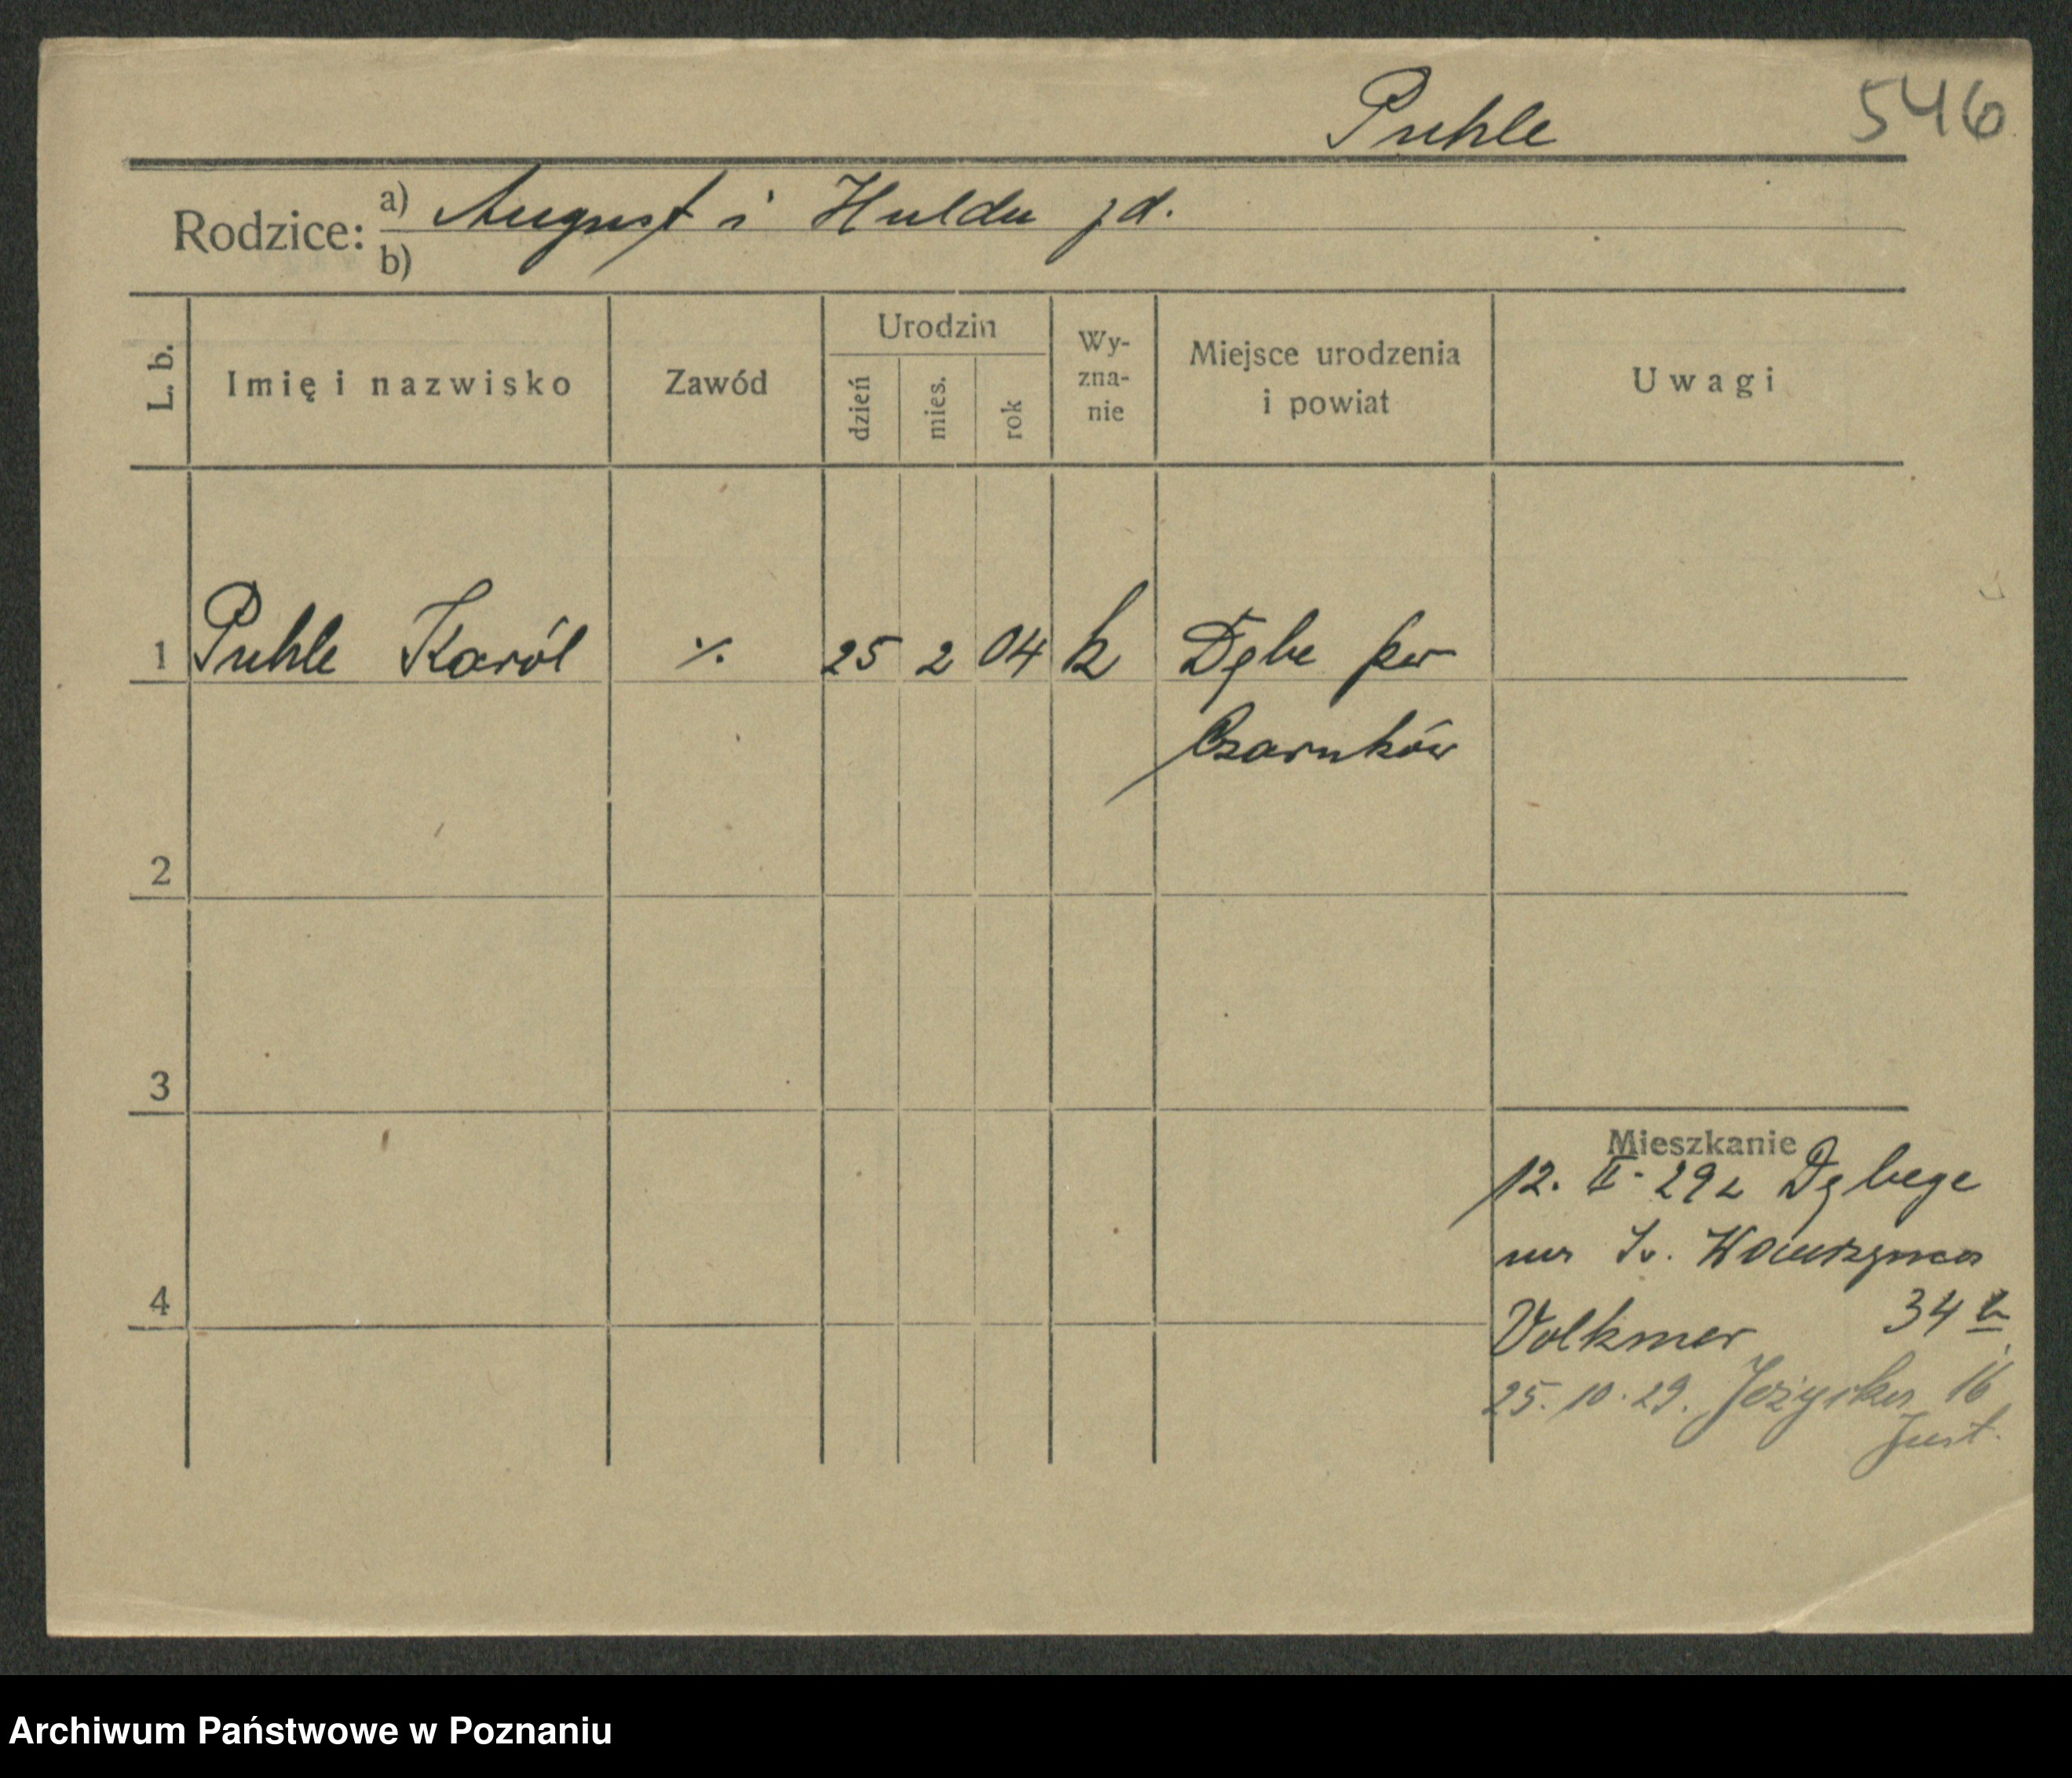 Puhle 546
Rodzice: a) August i Hulda jd.
b)
L. b. Imię i nazwisko Zawód Urodzin dzień mies. rok Wy-zna-nie Miejsce urodzenia i powiat Uwagi
1 Puhle Karól ·/. 25 2 04 k Dębe pow
Czarnków
2
3
Mieszkanie
12. II. 29 z Dębego
na Św. Wawrzyńca
4 34
Volkmer
25. 10. 29. Jeżycka 16
Just.
Archiwum Państwowe w Poznaniu